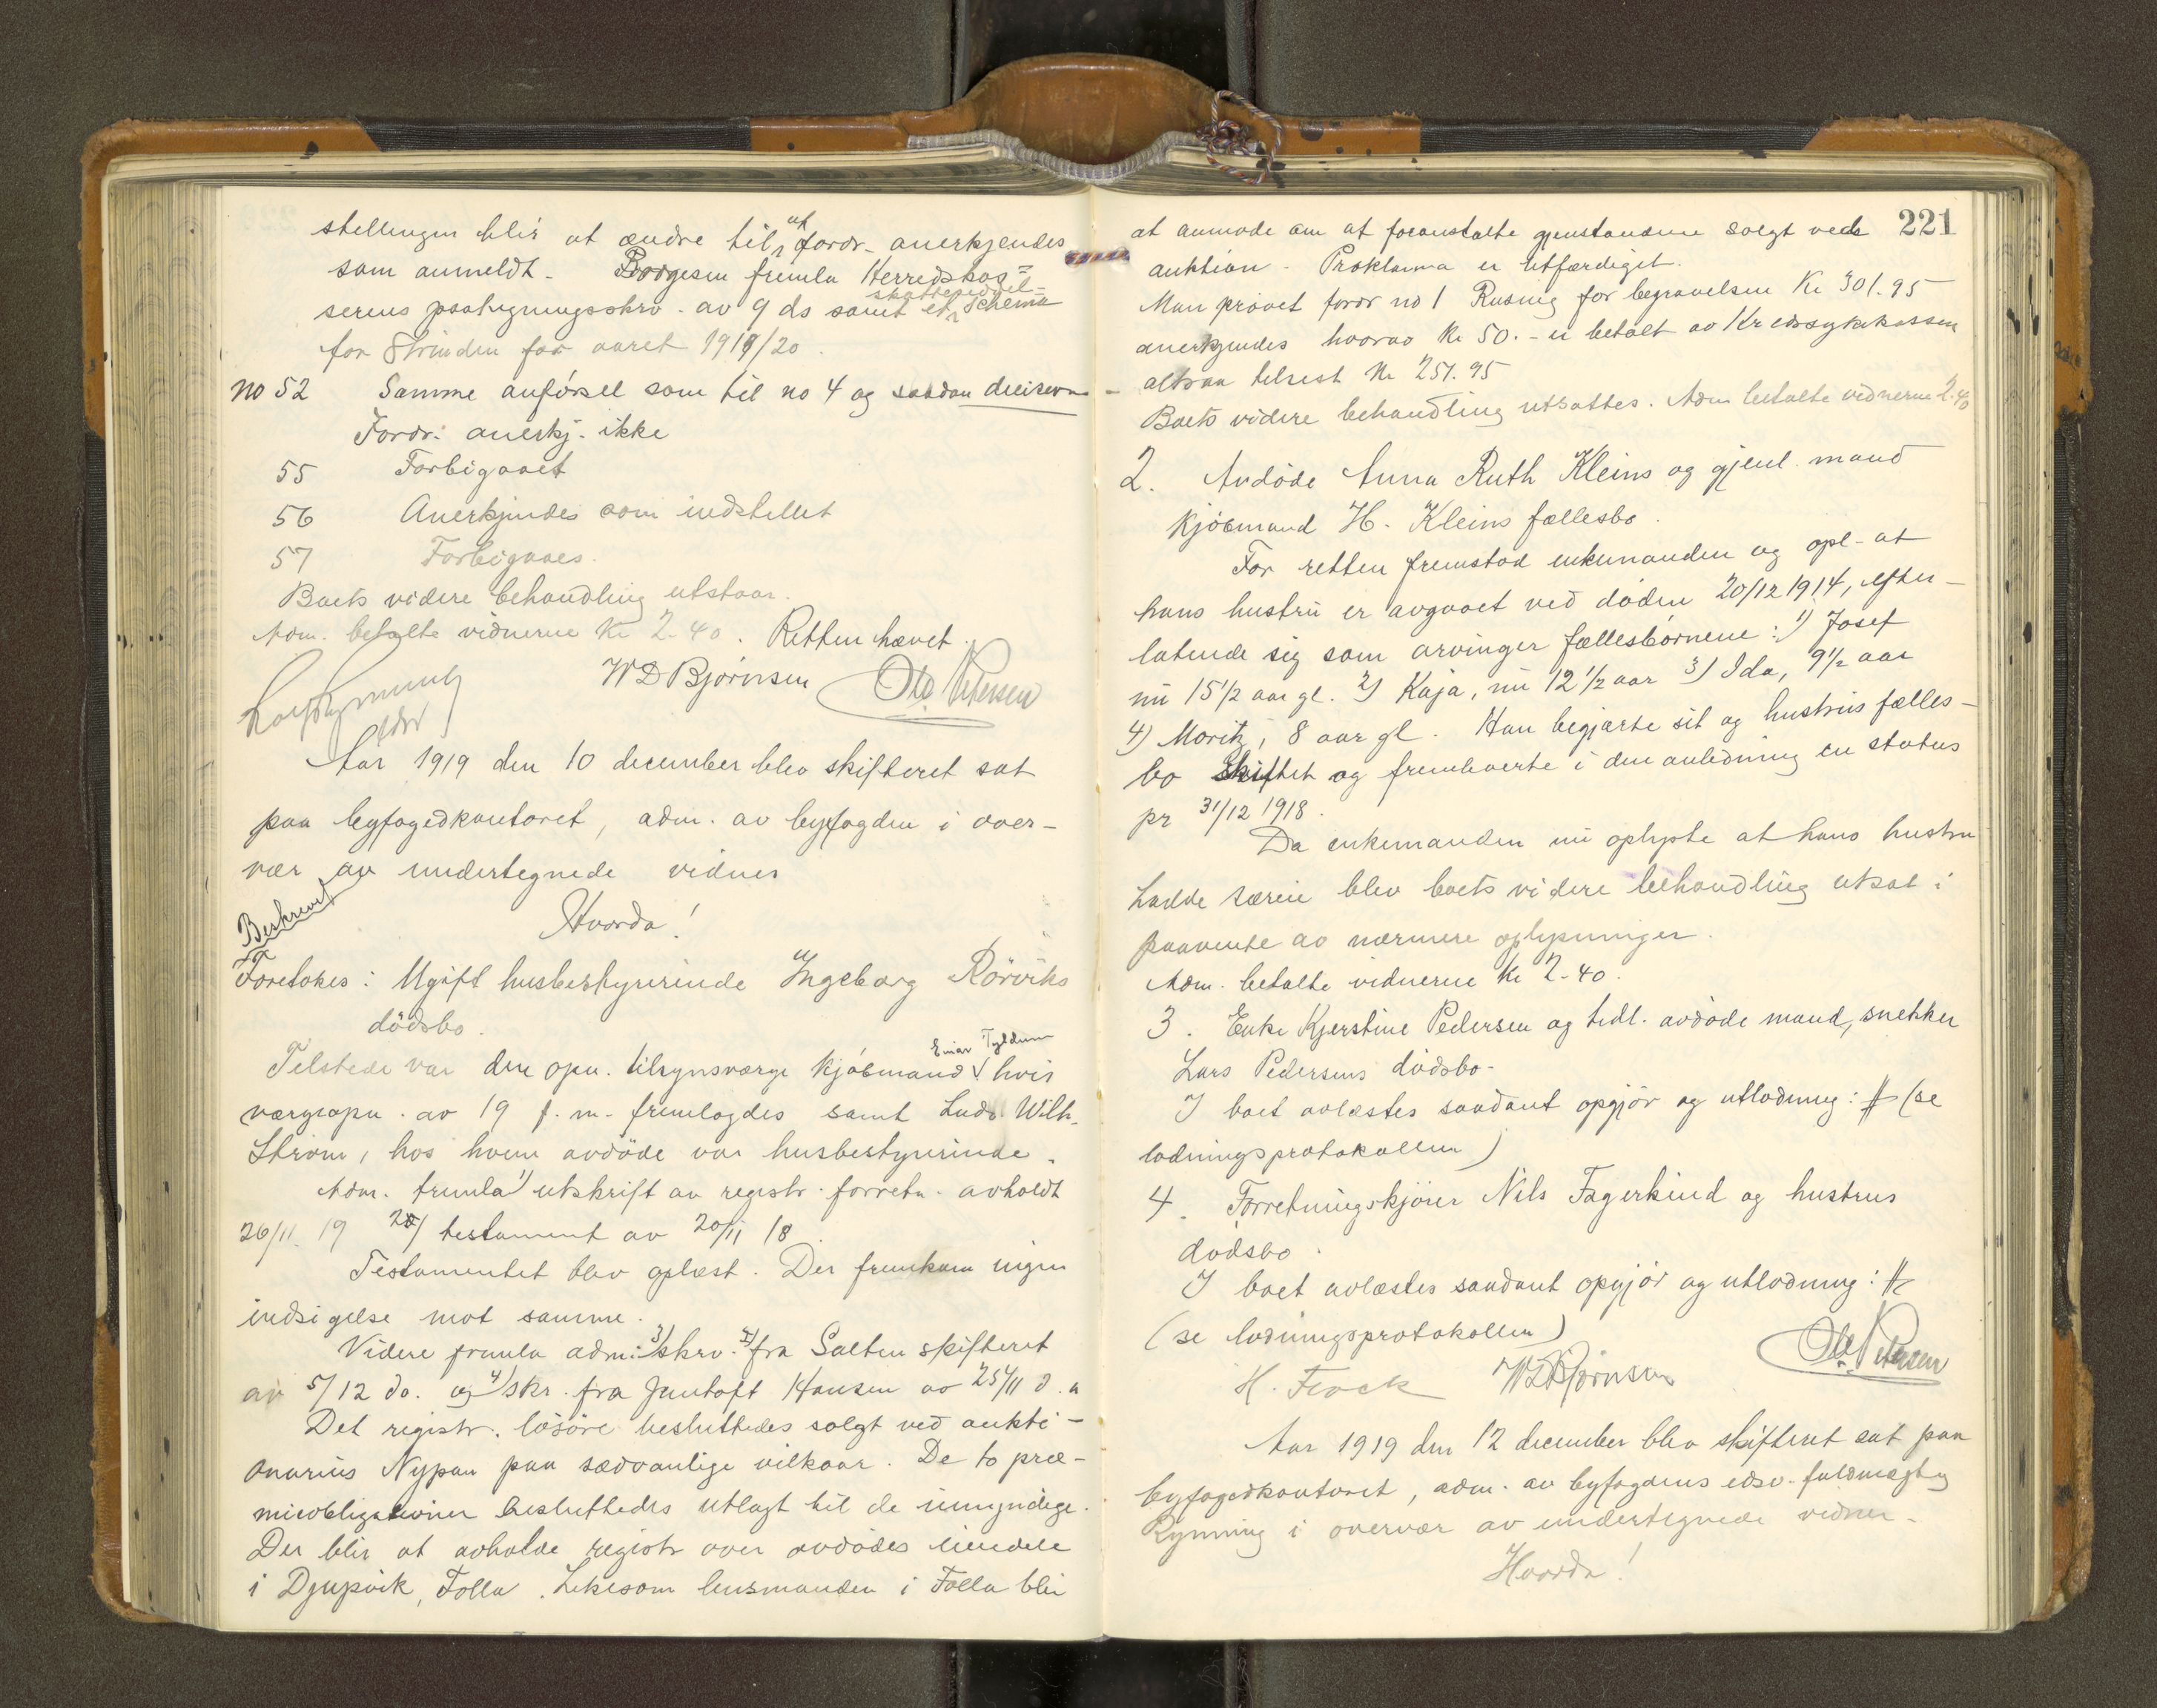 stellingen blir at ændre til at fordr. anerkjendes
som anmeldt. Borgesen fremla Herredskas-
serens paategningsskrv. av 9 ds samt et skatteseddel-schema
for Strinden for aaret 1919/20.
no 52 Samme anførsel som til no 4 og saadan decision
Fordr. anerkj. ikke
55 Forbigaaet
56 Anerkjendes som indstillet
57 Forbigaaes.
Boets videre behandling utstaar.
Adm. betalte vidnerne Kr 2.40. Retten hævet.
W D Bjørnsen Ole Petersen
Aar 1919 den 10 december blev skifteret sat
paa byfogedkontoret, adm. av byfogden i over-
vær av undertegnede vidner
Hvorda!
Beskrevet
Foretokes: Ugift husbestyrerinde Ingeborg Rørviks
dødsbo.
Tilstede var den opn. tilsynsværge kjøbmand Einar Tyldum hvis
værgeopn. av 19 f. m. fremlagdes samt Ludv. Wilh.
Strøm, hos hvem avdøde var husbestyrerinde.
Adm. fremla 1) utskrift av registr. forretn. avholdt
26/11 19 2) testament av 20/11 18.
Testamentet blev oplæst. Der fremkom ingen
indsigelse mot samme.
Videre fremla adm: 3) skrv. fra Salten skifteret
av 5/12 do. og 4) skr. fra Jentoft Hansen av 25/11 d. a
Det registr. løsøre besluttedes solgt ved aukti-
onarius Nypan paa sædvanlige vilkaar. De to præ-
mieobligationer besluttedes utlagt til de umyndige.
Der blir at avholde registr over avdødes eiendele
i Djupvik, Folla. Likesom lensmanden i Folla blir
221
at anmode om at foranstalte gjenstandene solgt ved
auktion. Proklama er utfærdiget.
Man prøvet fordr no 1 Rusing for begravelsen Kr 301.95
anerkjendes hvorav Kr 50.- er betalt av Kredssykekassen
altsaa tilrest Kr 251.95
Boets videre behandling utsattes. Adm betalte vidnerne 2.40
2. Avdøde Anna Ruth Kleins og gjenl. mand
kjøbmand H. Kleins fællesbo.
For retten fremstod enkemanden og opl. at
hans hustru er avgaaet ved døden 20/12 1914, efter-
latende sig som arvinger fællesbørnene: 1) Josef
nu 15½ aar gl. 2) Kaja, nu 12½ aar 3) Ida, 9½ aar
4) Moritz, 8 aar gl. Han begjærte sit og hustrus fælles-
bo skiftet og fremleverte i den anledning en status
pr 31/12 1918.
Da enkemanden nu oplyste at hans hustru
hadde særeie blev boets videre behandling utsat i
paavente av nærmere oplysninger.
Adm. betalte vidnerne Kr 2.40.
3. Enke Kjerstine Pedersen og tidl. avdøde mand, snekker
Lars Pedersens dødsbo.
I boet avlæstes saadant opgjør og utlodning: # (se
lodningsprotokollen)
4. Forretningskjører Nils Fagerkind og hustrus
dødsbo.
I boet avlæstes saadant opgjør og utlodning: #
(se lodningsprotokollen)
H. Flock W D Bjørnsen Ole Petersen
Aar 1919 den 12 december blev skifteret sat paa
byfogedkontoret, adm. av byfogdens edsv. fuldmægtig
Rynning i overvær av undertegnede vidner.
Hvorda!